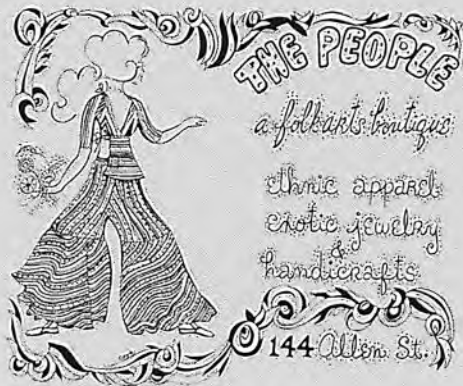 THE PEOPLE
a folkarts boutique
ethnic apparel
exotic jewelry
&
handicrafts
144 Allen St.